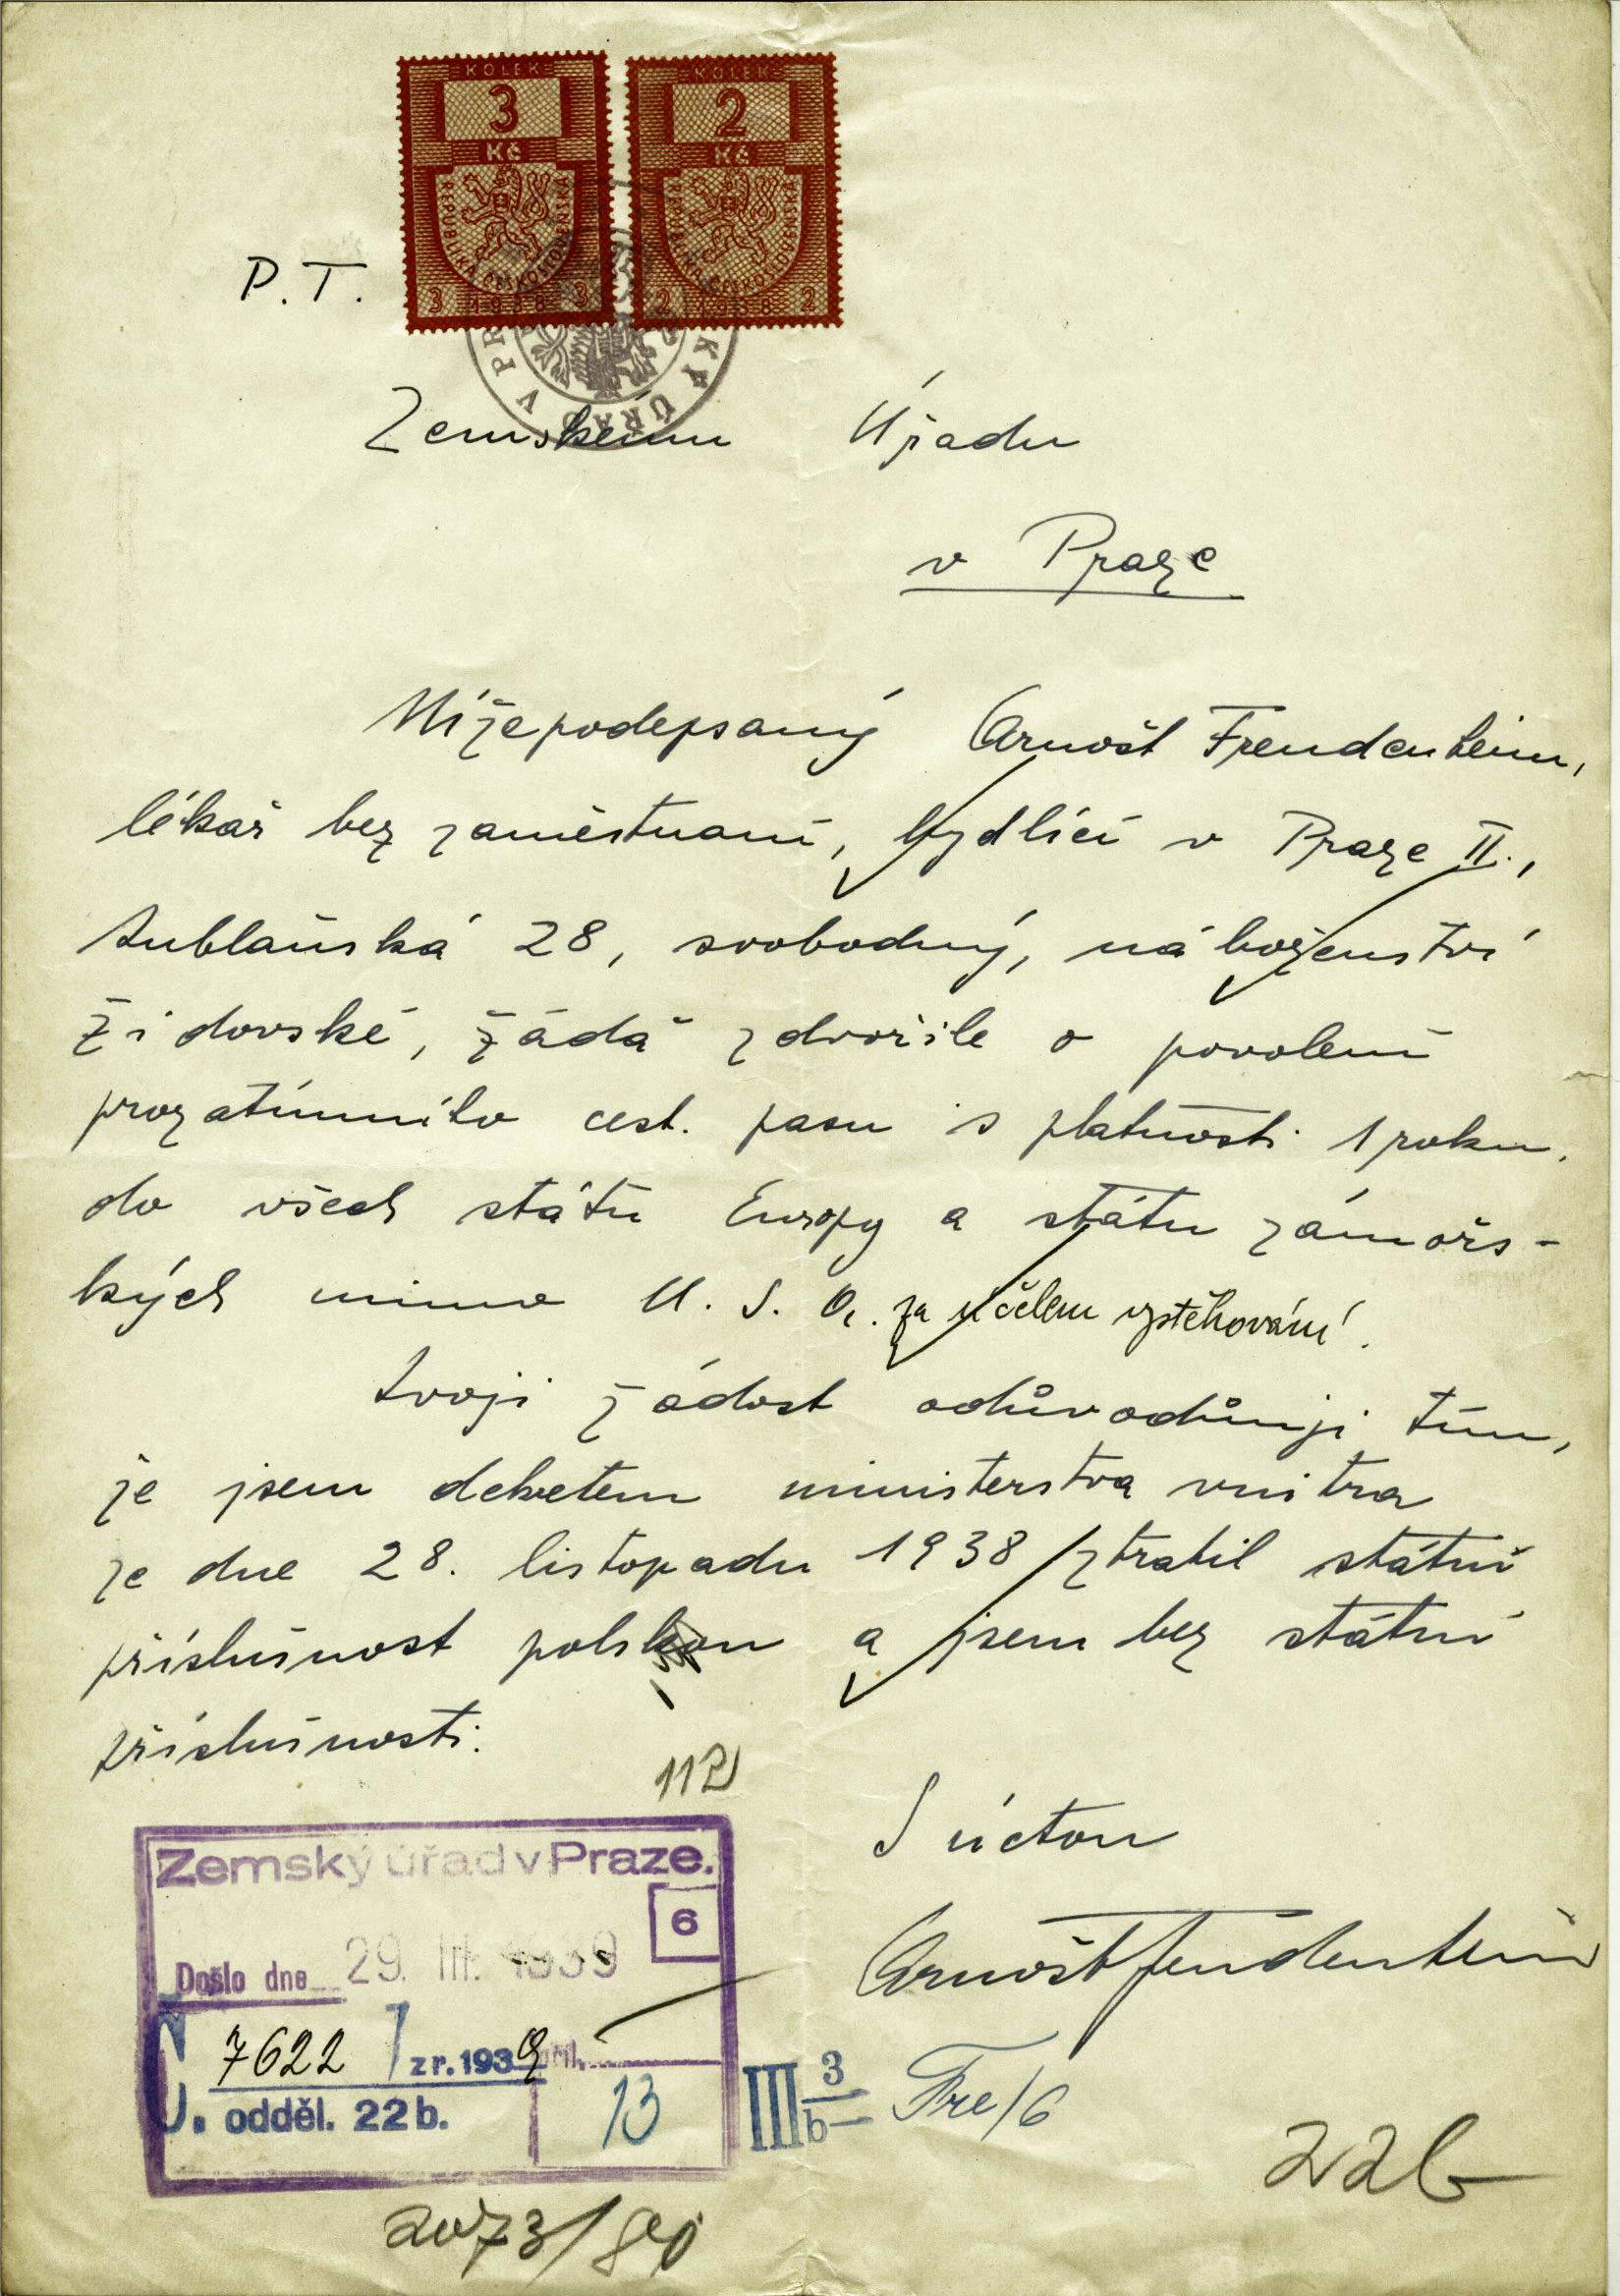 KOLEK KOLEK
3 2
Kč Kč
REPUBLIKA ČESKOSLOVENSKÁ REPUBLIKA ČESKOSLOVENSKÁ
3 1938 3 2 1938 2
P.T.
Zemskému Úřadu
v Praze
Níže podepsaný Arnošt Freudenheim,
lékař bez zaměstnání, bydlící v Praze II.,
Lublaňská 28, svobodný, náboženství
židovské, žádá zdvořile o povolení
prozatímního cest. pasu s platností 1 roku
do všech států Evropy a států zámořs-
kých mimo U. S. A. za účelem vystěhování.
Svoji žádost odůvodňuji tím,
že jsem dekretem ministerstva vnitra
ze dne 28. listopadu 1938 ztratil státní
příslušnost polskou a jsem bez státní
příslušnosti.
112
S úctou
Arnošt Freudenheim
Zemský úřad v Praze.
6
Došlo dne 29. III. 1939
7622 / z r. 1939 příl.
odděl. 22b. 13
III 3/b Fre/6
22b